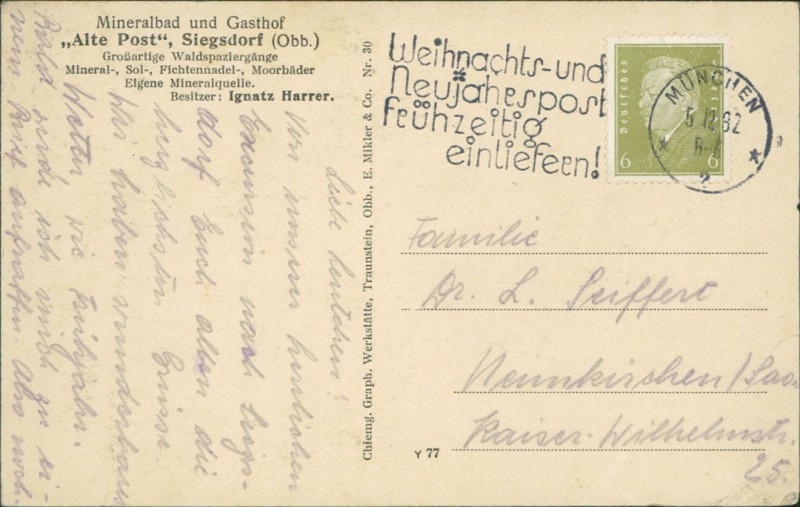 Mineralbad und Gasthof
„Alte Post“, Siegsdorf (Obb.)
Großartige Waldspaziergänge
Mineral-, Sol-, Fichtennadel-, Moorbäder
Eigene Mineralquelle.
Besitzer: Ignatz Harrer.
Liebe
Von unserer herrlichen
Excursion nach Siegs-
dorf Euch allen die
herzlichsten Grüsse.
Wir haben wunderbares
Wetter wie Frühjahr.
Bald werde ich mich zu ei-
nem Brief aufraffen. Also
Chiemg. Graph. Werkstätte, Traunstein, Obb., E. Mikler & Co. Nr. 30
Weihnachts- und
Neujahrspost
frühzeitig
einliefern!
Deutsches
6 6
MÜNCHEN
5.12.32
2
Familie
Dr. L. Seiffert
Neunkirchen/Saar
Kaiser-Wilhelmstr.
25.
Y 77